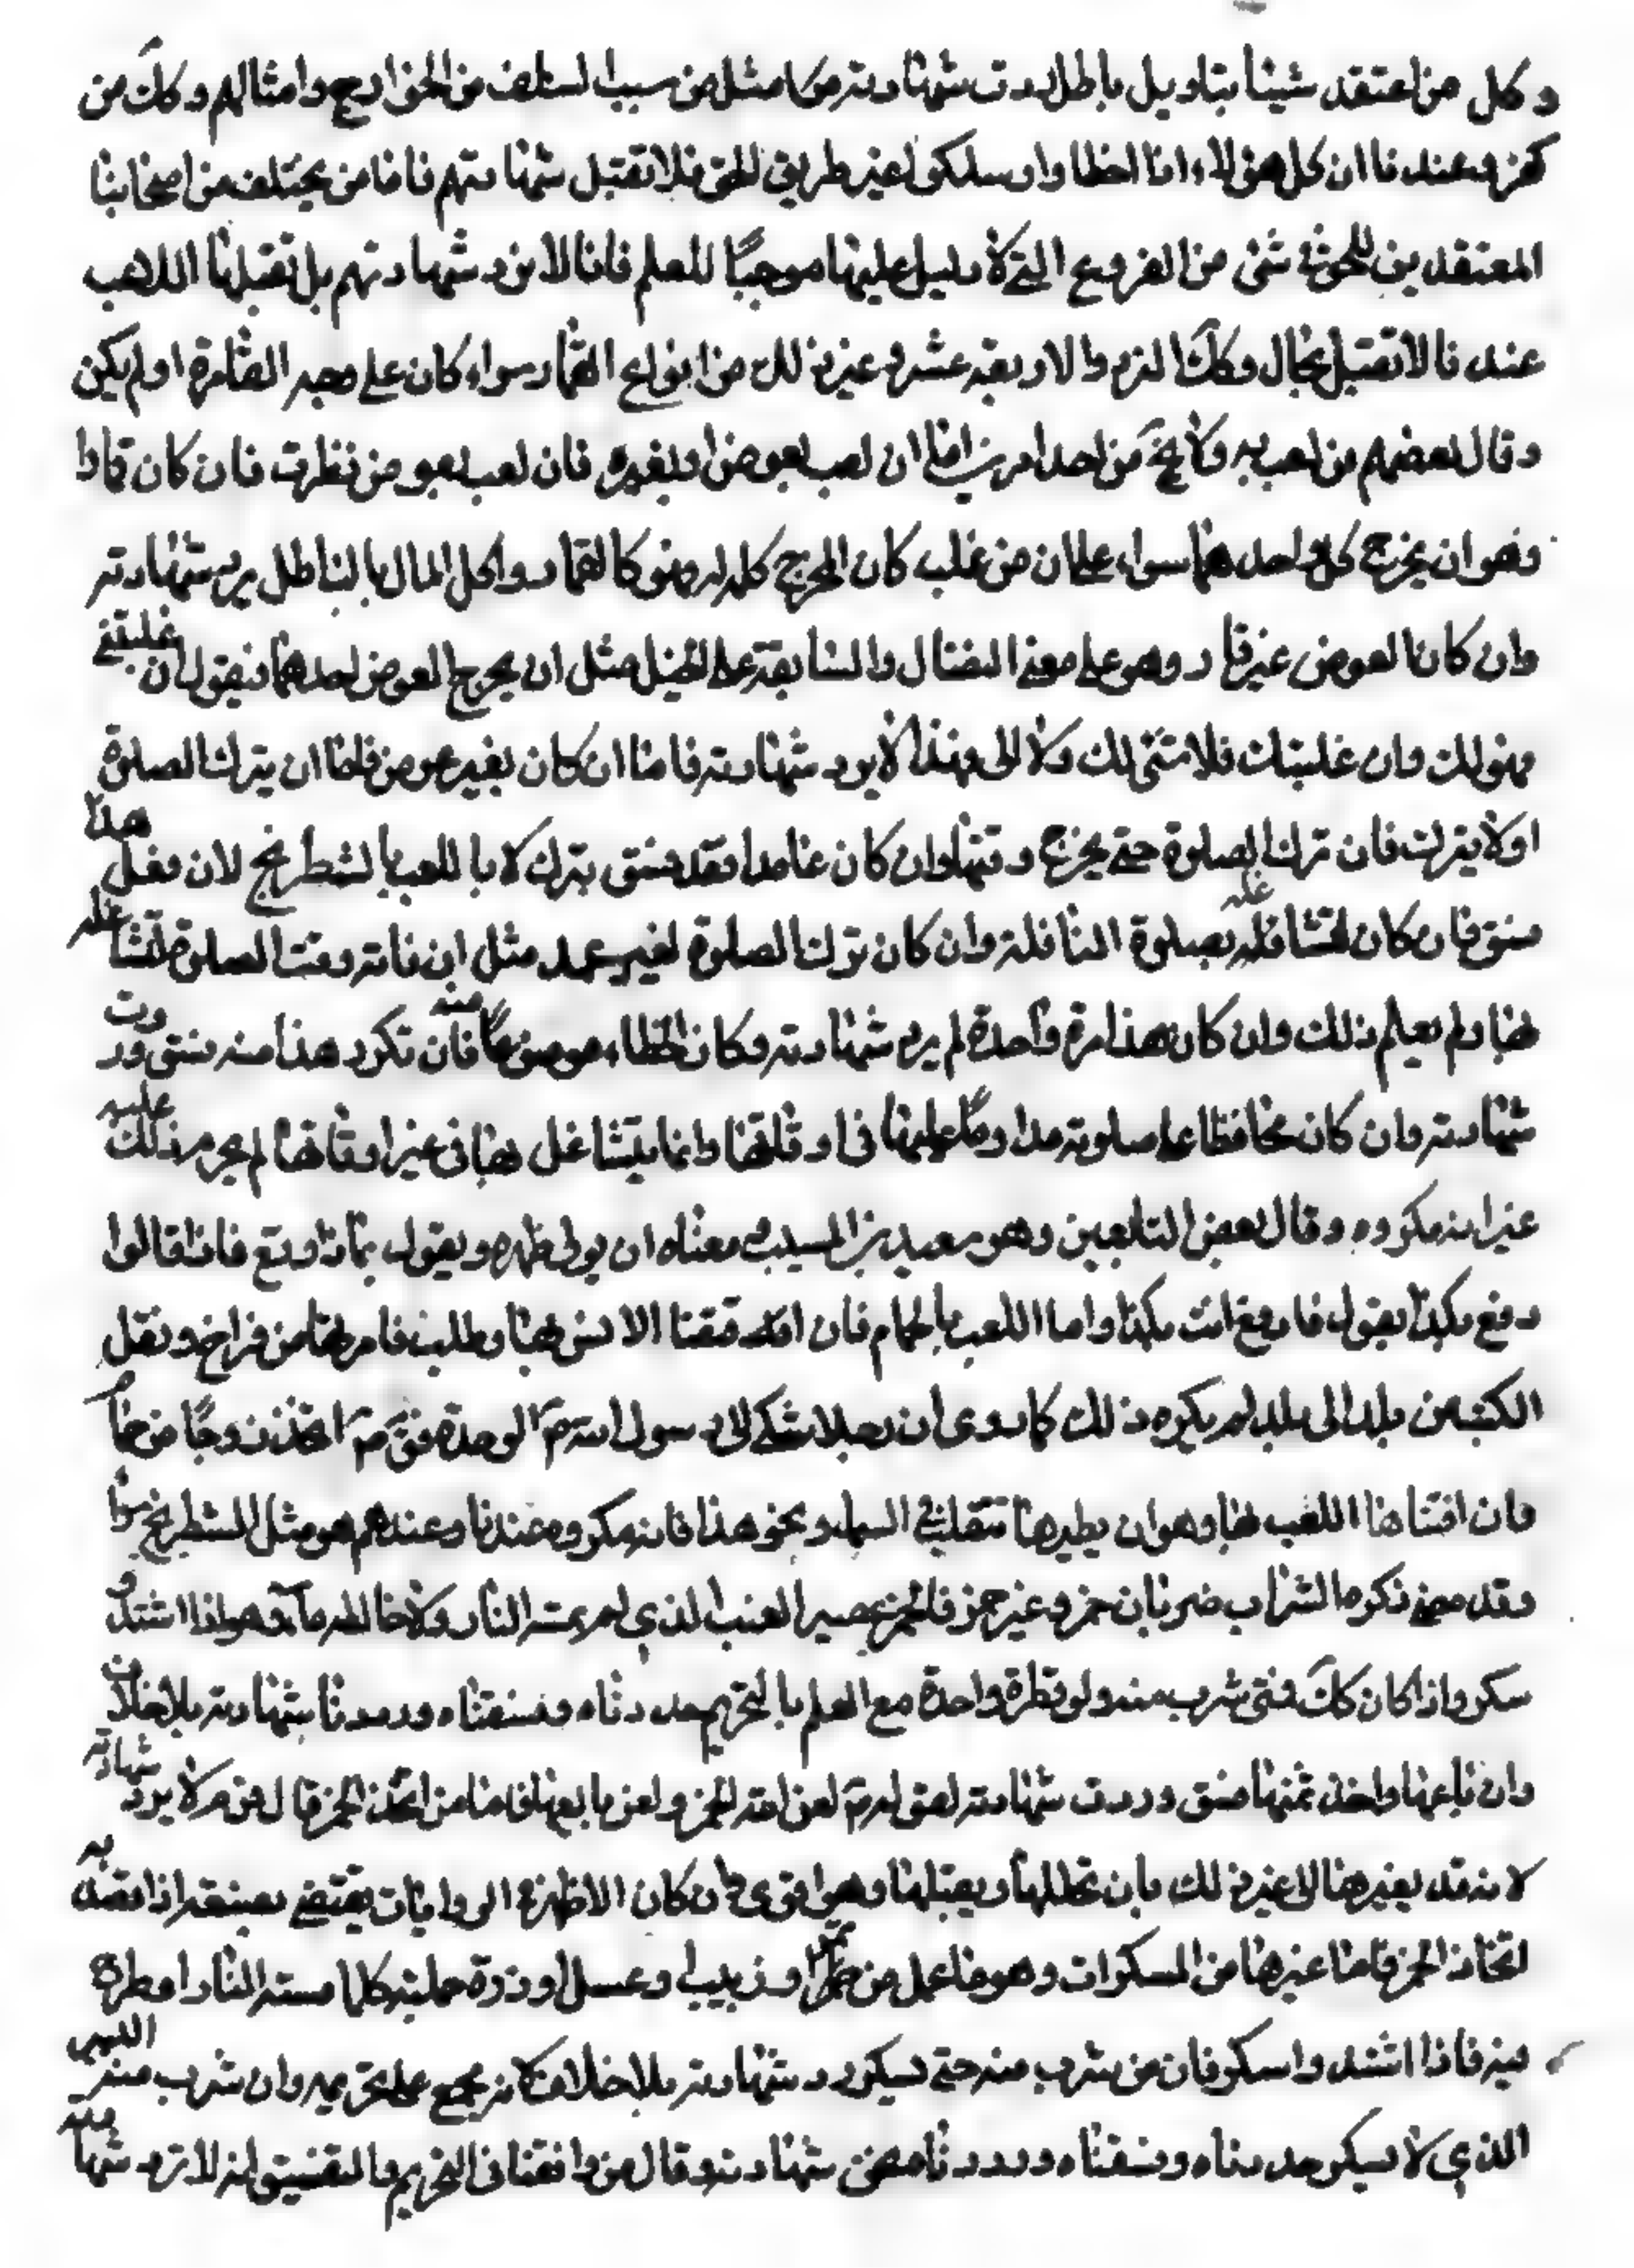 وكل من اعتقد شيئا بتاويل باطل ردت شهادته من كا مثل من سب السلف من الخوارج وامثالهم وكك من
كفر وعندنا ان كل هؤلاء اذا اخطاوا وسلكوا غير طريق الحق فلا تقبل شهادتهم فاما من يختلف من اصحابنا
المعتقدين للحق في شئ من الفروع التي لا دليل عليها موجبا للعلم فانا لا نرد شهادتهم بل نقبلها اللاعب
عندنا لا تقبل بحال وكك النرد والاربعة عشر وغير ذلك من انواع القمار سواء كان على وجه القمار او لم يكن
وقال بعضهم من لعب به ولا يخ من احد امرين اما ان لعب بعوض او بغيره فان لعب بعوض نظرت فان كان قمارا
وهو ان يخرج كل واحد منهما سواء على ان من غلب كان المخرج كله له وهو كالقمار واكل المال بالباطل يرد شهادته
وان كان العوض غير قمار وهو على معنى النضال والمسابقة على الخيل مثل ان يخرج العوض احدهما فيقول ان غلبتني
فهو لك وان غلبتك فلا شئ لك ولا لى فهذا لا يرد شهادته فاما ان كان بغير عوض فاما ان يترك الصلوة
او لا يترك فان ترك الصلوة حتى يخرج وقتها وان كان عامدا فقد فسق بترك لا باللعب بالشطرنج لان فعل هذا
فسق فان كان لتشاغله بصلوة النافلة وان كان ترك الصلوة لغير عمد مثل ان فاته وقت الصلوة لتشاغله
بها ولم يعلم ذلك وان كان هذا مرة واحدة لم يرد شهادته وكان الخطاء موضوعا منه فان تكرر هذا منه فسق وردت
شهادته وان كان محافظا على صلوته مداوما عليها في اوقاتها وانما يتشاغل بها في غير اوقاتها لم يحرم ذلك عليه
غير انه مكروه وقال بعض التابعين وهو سعيد بن المسيب معناه ان يولى ظهره ويقول بماذا وقع فاذا قالوا
دفع بكذا يقول فادفع انت بكذا واما اللعب بالحمام فان اقتنا الانس بها وطلب فائدتها من فراخ ونقل
الكتب من بلد الى بلد لم يكره ذلك كما روى ان رجلا شكى الى رسول الله ص الوحدة فق ص اتخذ زوجا من حمام
وان اقتناها اللعب بها وهو ان يطيرها تتقلب في السماء ونحو هذا فانه مكروه عندنا وعندهم هو مثل الشطرنج سواء
وقد مضى ذكره الشراب ضربان خمر وغير خمر فالخمر عصير العنب الذي لم يمسه النار ولا خالطه ماء وهو اذا اشتد و
سكر واذا كان كك فمتى شرب منه ولو قطرة واحدة مع العلم بالتحريم حددناه وفسقناه ورددنا شهادته بلا خلاف
وان باعها واخذ ثمنها فسق وردت شهادته لقوله ص لعن الله الخمر ولعن بايعها فاما من اتخذ الخمر قال قوم لا يرد شهادته
لانه قد يغيرها الى غير ذلك بان تخللها ويقبلها وهو اقوى وان كان الاظهر في الروايات يقتضي بفسقه اذا قصد به
اتخاذ الخمر فاما غيرها من المسكرات وهو ما عمل من تمر او زبيب او عسل او ذرة جملته كلما مسته النار او طرح
فيه فاذا اشتد واسكر فان من شرب منه حتى يسكر رد شهادته بلا خلاف لانه مجمع على تحريمه وان شرب منه اليسير
الذي لا يسكر حددناه وفسقناه ورددنا شهادته وقال من وافقنا في التحريم والتفسيق انه لا ترد شهادته